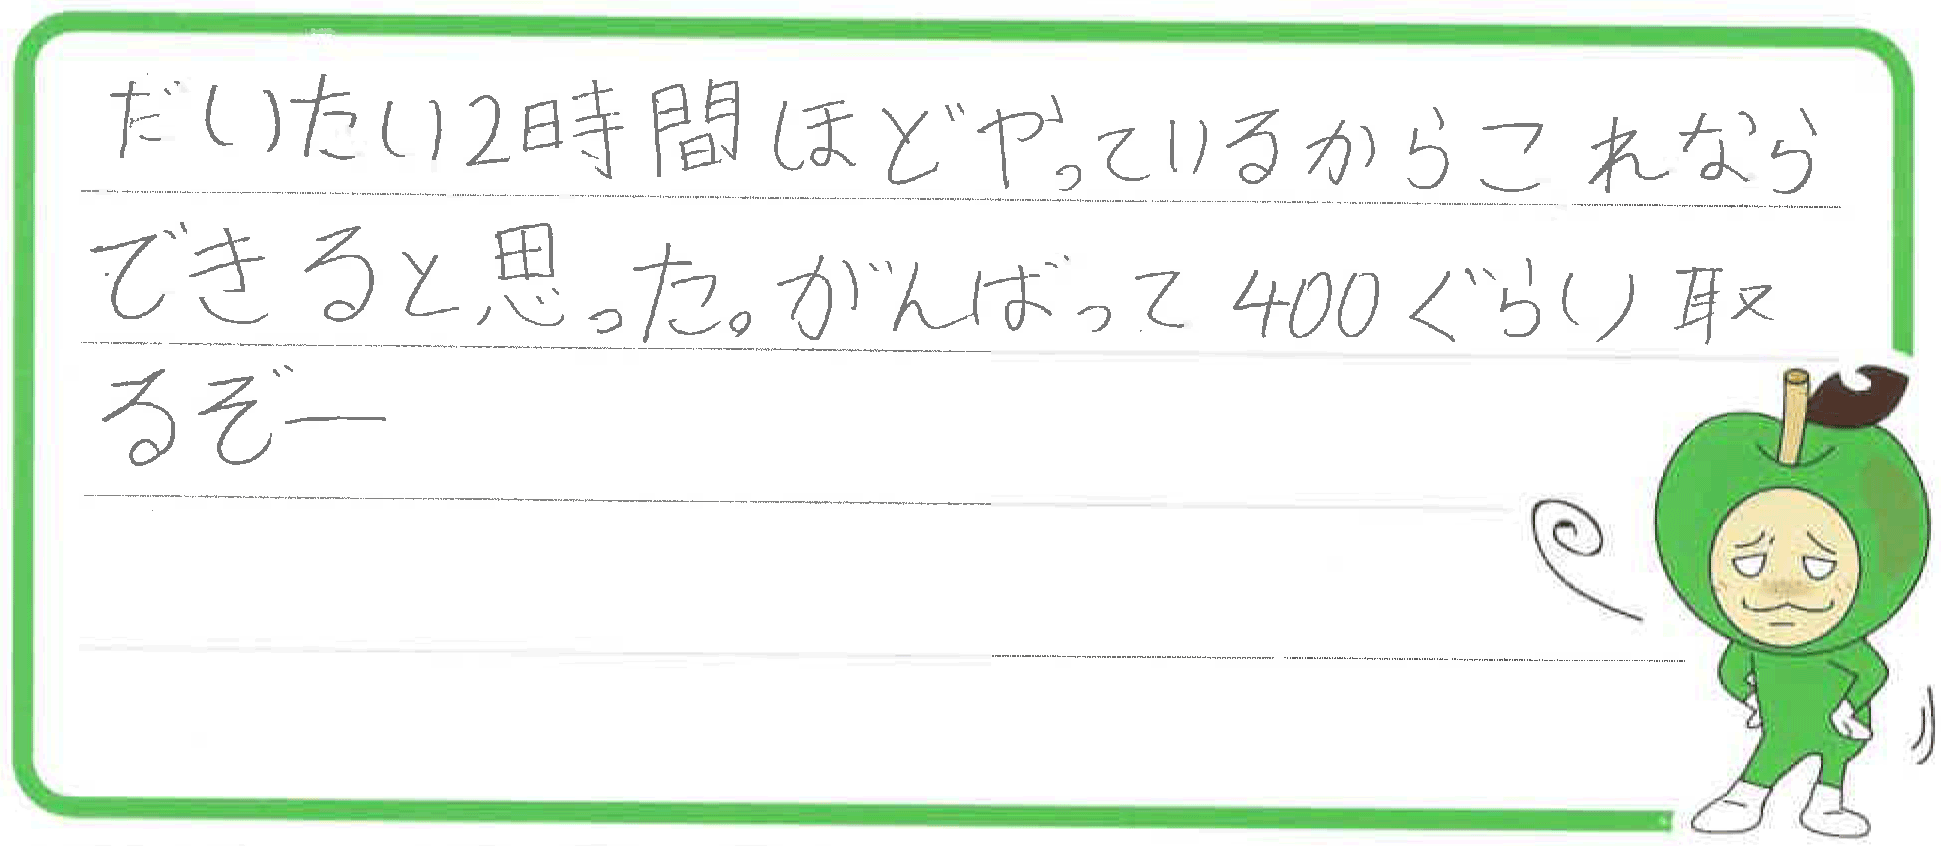 だいたい2時間ほどやっているからこれなら
できると思った。がんばって400ぐらい取
るぞー